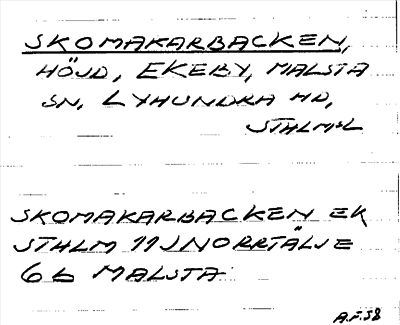 SKOMAKARBACKEN,
HÖJD, EKEBY, MALSTA
SN, LYHUNDRA HD,
STHLMSL
SKOMAKARBACKEN EK
STHLM 11J NORRTÄLJE
6b MALSTA
A.F.58